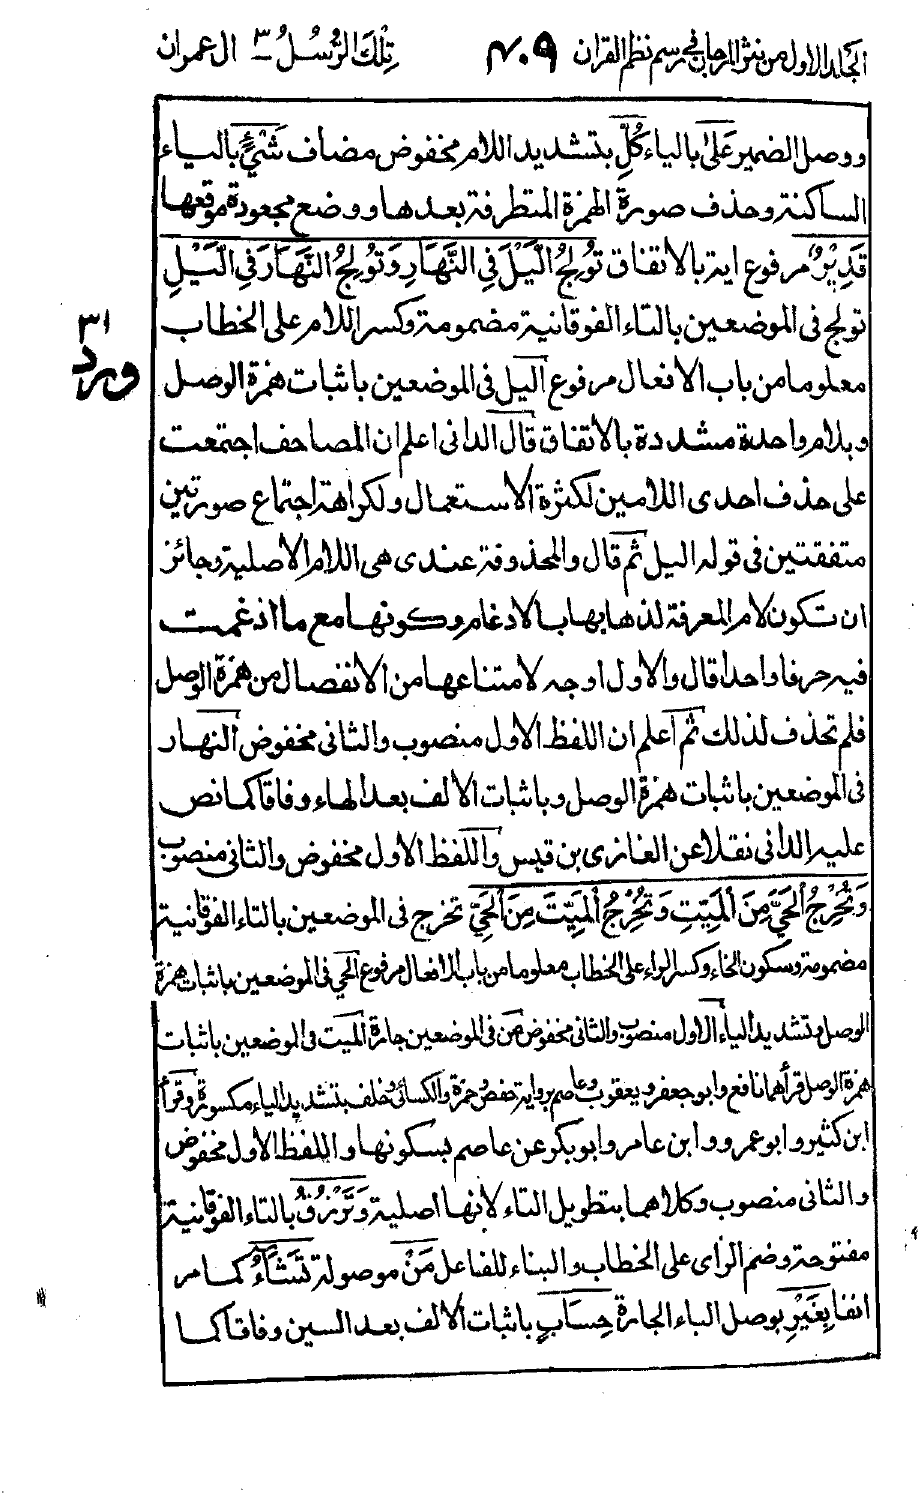 المجلد الاول من نثر المرجان في رسم نظم القران ٤٠٩ تِلْكَ الرُّسُلُ ٣ ال عمران
ووصل الضمير عَلىٰ بالياء كُلِّ بتشديد اللام مخفوض مضاف شَيْءٍ بالياء
الساكنة وحذف صورة الهمزة المتطرفة بعدها ووضع مجعودة موقعها
قَدِيْرٌ مرفوع اية بالاتفاق تُوْلِجُ الَّيْلَ فِي النَّهَارِ وَتُوْلِجُ النَّهَارَ فِي الَّيْلِ
تولج في الموضعين بالتاء الفوقانية مضمومة وكسر اللام على الخطاب
معلوما من باب الافعال مرفوع اليل في الموضعين باثبات همزة الوصل
وبلام واحدة مشددة بالاتفاق قال الداني اعلم ان المصاحف اجتمعت
على حذف احدى اللامين لكثرة الاستعمال ولكراهة اجتماع صورتين
متفقتين في قوله اليل ثم قال والمحذوفة عندي هي اللام الاصلية وجائز
ان تكون لام المعرفة لذهابها بالادغام وكونها مع ما ادغمت
فيه حرفا واحدا قال والاول اوجه لامتناعها من الانفصال من همزة الوصل
فلم تحذف لذلك ثم اعلم ان اللفظ الاول منصوب والثاني مخفوض النهار
في الموضعين باثبات همزة الوصل وباثبات الالف بعد الهاء وفاقا كما نص
عليه الداني نقلا عن الغازي بن قيس واللفظ الاول مخفوض والثاني منصوب
وَتُخْرِجُ الْحَيَّ مِنَ الْمَيِّتِ وَتُخْرِجُ الْمَيِّتَ مِنَ الْحَيِّ تخرج في الموضعين بالتاء الفوقانية
مضمومة وسكون الخاء وكسر الراء على الخطاب معلوما من باب الافعال مرفوع الحي في الموضعين باثبات همزة
الوصل وتشديد الياء الاول منصوب والثاني مخفوض من في الموضعين جارة الميت في الموضعين باثبات
همزة الوصل قرأهما نافع وابو جعفر ويعقوب وعاصم برواية حفص وحمزة والكسائي وخلف بتشديد الياء مكسورة وقرأ
ابن كثير وابو عمرو وابن عامر وابو بكر عن عاصم بسكونها واللفظ الاول مخفوض
والثاني منصوب وكلاهما بتطويل التاء لانها اصلية وَتَرْزُقُ بالتاء الفوقانية
مفتوحة وضم الزاى على الخطاب والبناء للفاعل مَنْ موصولة تَشَاءُ كما مر
انفا بِغَيْرِ بوصل الباء الجارة حِسَابٍ باثبات الالف بعد السين وفاقا كما